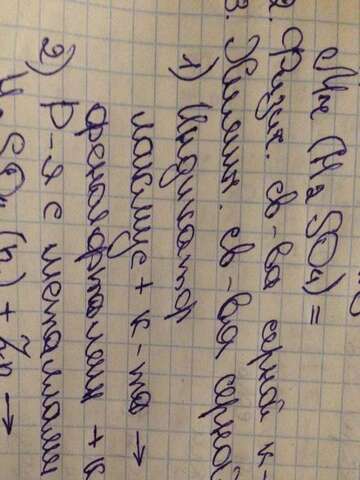 Mr (H2SO4) =
2. Физич. св-ва серной к-
3. Химич. св-ва серной
1) Индикатор
лакмус + к-та →
фенолфталеин + к
2) Р-я с металлами
H2SO4 (р.) + Zn →